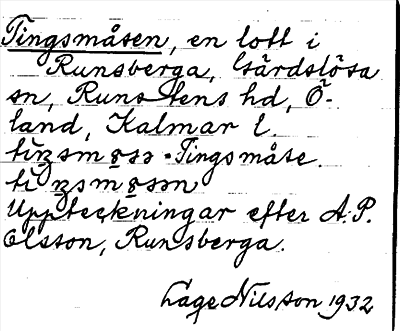 Tingsmåsen, en lott i
Runsberga, Gärdslösa
sn, Runstens hd, Ö-
land, Kalmar l.
Tingsmåse.
Uppteckningar efter A.P.
Olsson, Runsberga.
Lage Nilsson 1932